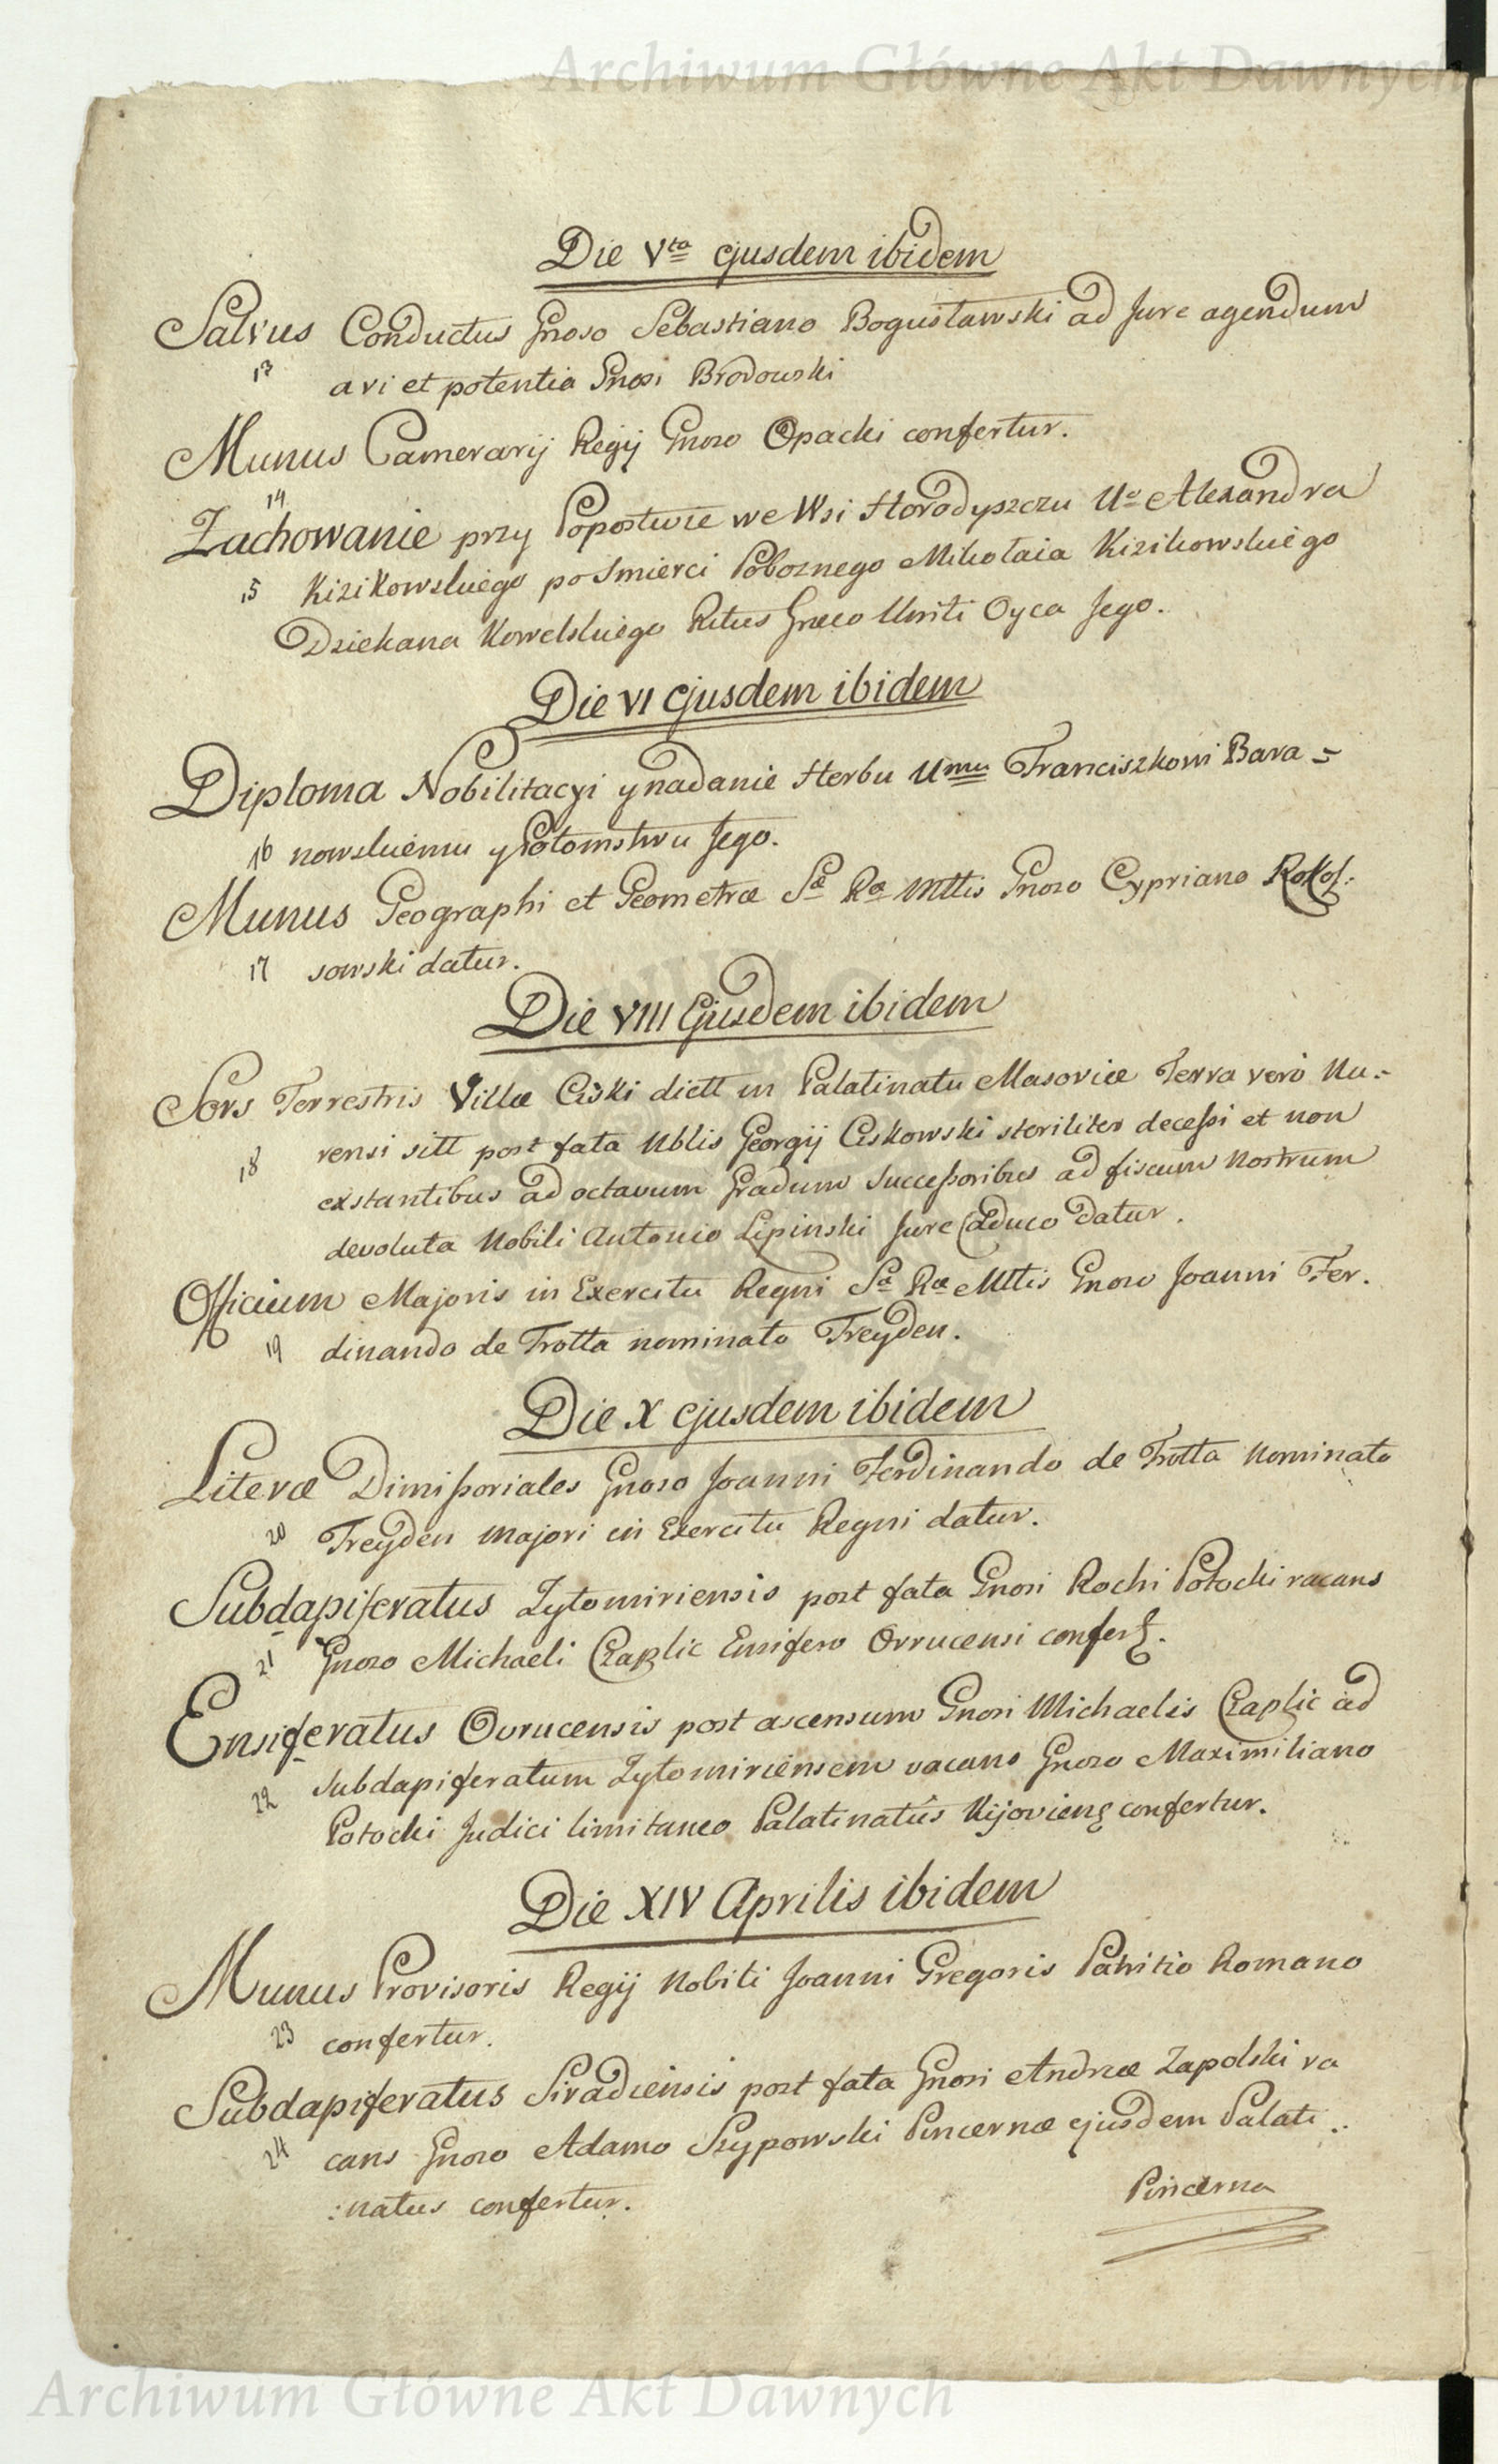 Archiwum Główne Akt Dawnych
Die Vta ejusdem ibidem
Salvus Conductus Gnoso Sebastiano Bogusławski ad Jure agendum
13 a vi et potentia Gnosi Brodowski
Munus Camerarij Regij Gnoso Opacki confertur.
14
Zachowanie przy Popostwie we Wsi Horodyszczu Uo Alexandra
15 Kizikowskiego po Smierci Poboznego Mikołaia Kizikowskiego
Dziekana Kowelskiego Ritus Græco Uniti Oyca Jego.
Die VI ejusdem ibidem
Diploma Nobilitacyi y nadanie Herbu Umu Franciszkowi Bara =
16 nowskiemu y Potomstwu Jego.
Munus Geographi et Geometræ Sæ Ræ Mttis Gnoso Cypriano Rokos:
17 sowski datur.
Die VIII Ejusdem ibidem
Sors Terrestris Villæ Ciski dictt in Palatinatu Masoviæ Terra verò Nu:-
18 rensi sitt post fata Nblis Georgij Ciskowski steriliter decessi et non
exstantibus ad octavum Gradum Successoribus ad fiscum Nostrum
devoluta Nobili Antonio Lipinski Jure Caduco datur.
Officium Majoris in Exercitu Regni Sæ Ræ Mttis Gnoso Joanni Fer.
19 dinando de Trotta nominato Treyden.
Die X ejusdem ibidem
Literæ Dimissoriales Gnoso Joanni Ferdinando de Trotta Nominato
20 Treyden Majori in Exercitu Regni datur.
Subdapiferatus Zytomiriensis post fata Gnosi Rochi Potocki vacans
21 Gnoso Michaeli Czaplic Ensifero Ovrucensi confert.
Ensiferatus Ovrucensis post ascensum Gnosi Michaelis Czaplic ad
22 Subdapiferatum Zytomiriensem vacans Gnoso Maximiliano
Potocki Judici limitaneo Palatinatûs Kijoviens confertur.
Die XIV Aprilis ibidem
Munus Provisoris Regij Nobili Joanni Gregoris Patritio Romano
23 confertur.
Subdapiferatus Siradiensis post fata Gnosi Andreæ Zapolski va
24 cans Gnoso Adamo Szypowski Pincernæ ejusdem Palati :
:natus confertur.
Pincerna
Archiwum Główne Akt Dawnych